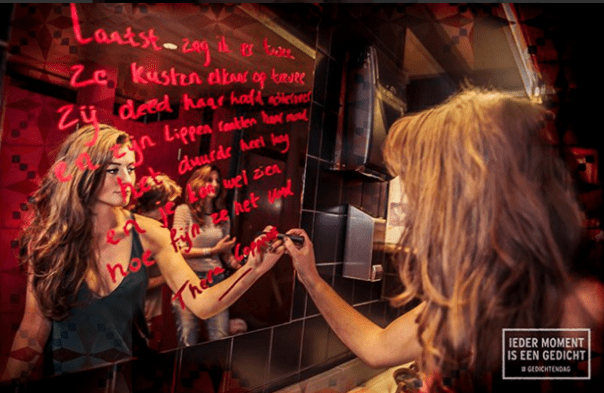 Laatst zag ik er twee
Ze kusten elkaar op twee
zij deed haar hoofd achterover
en zijn lippen raakten haar mond
het duurde heel lang
en je kon wel zien
hoe fijn ze het vond
IEDER MOMENT
IS EEN GEDICHT
# GEDICHTENDAG